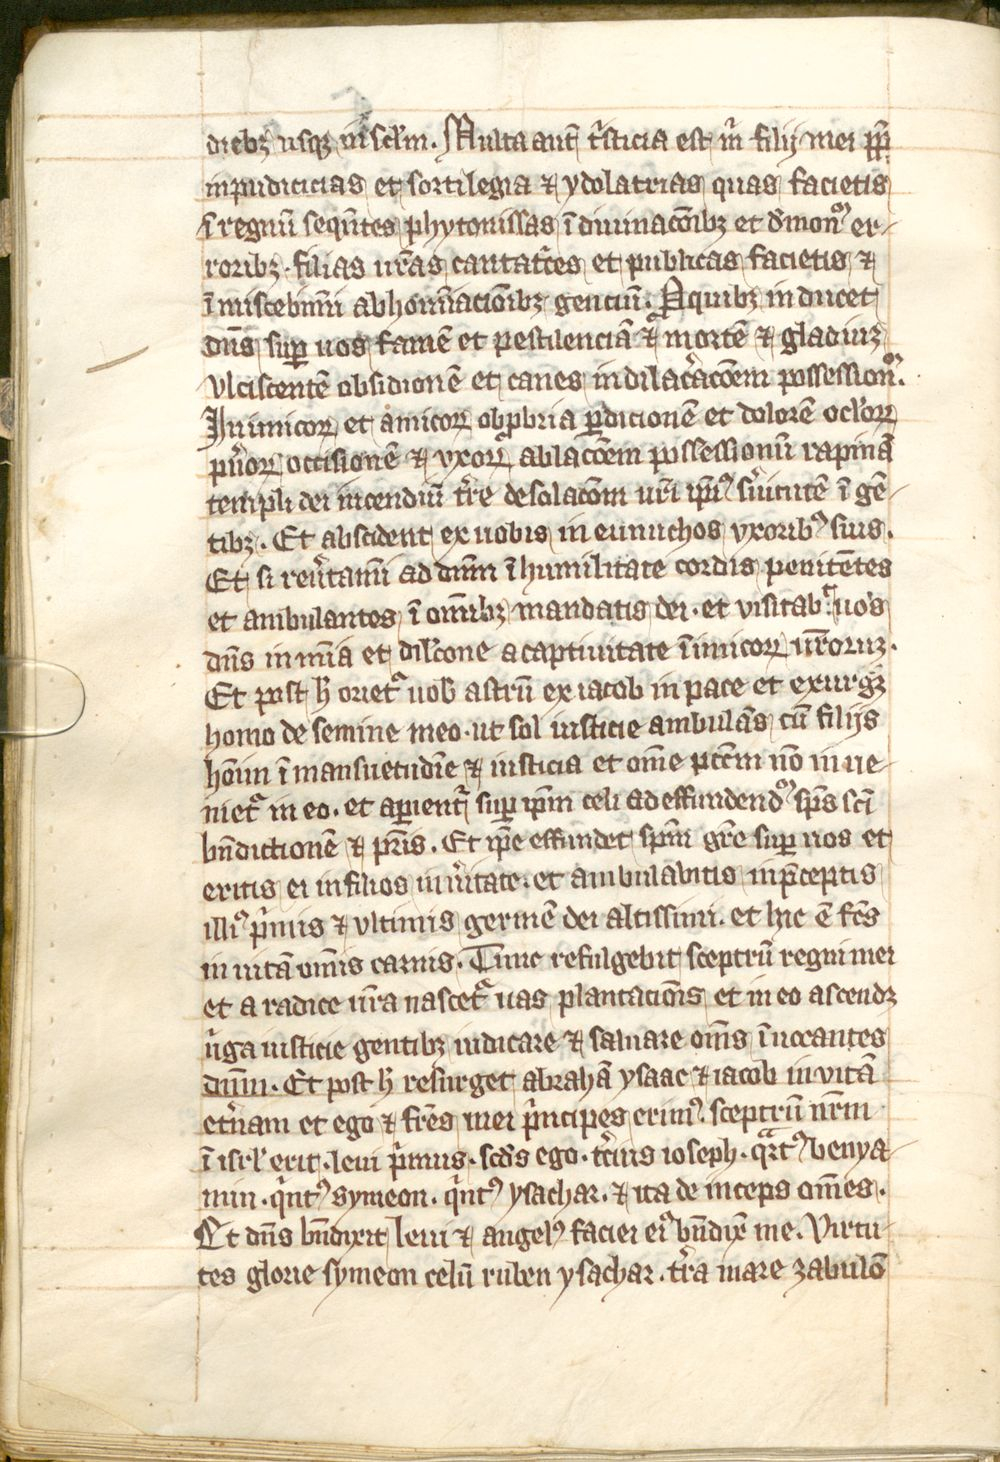 diebꝫ usqꝫ in sc̄lm. Multa aut̄ tͥsticia est m̄ filij mei ꝓp̄
inpudicicias et sortilegia ⁊ ydolatrias quas facietis
ī regnū seqn̄tes phytonissas ī diuinac̄oībꝫ et dm̄onꝝ er-
roribꝫ. filias ur̄as cantatͥces et publicas facietis ⁊
ī miscebimī abhoīnacionībꝫ genciū. Pro quibꝫ inducet
dn̄s suꝑ uos famē et pestilenciā ⁊ mortē ⁊ gladiuꝫ
vlciscentē obsidionē et canes in dilac̓ac̄oem possessionꝝ.
Inimicoꝝ et amicoꝝ obꝓbria ꝑdicionē et dolorē ocl̓oꝝ
pu̓oꝝ occisionē ⁊ vxoꝝ ablac̄oem possessionū rapinā
templi dei incendiū tr̄e desolac̄om ur̄i ip̄iꝰ s̓uitutē ī gē-
tibꝫ. Et abscident ex uobis in eunuchos vxoribꝰ suis.
Et si reu̓tamī ad dn̄m ī humilitate cordis penitētes
et ambulantes ī om̄ībꝫ mandatis dei. et visitabᵗ uos
dn̄s in mīa et dil̓cone a captiuitate īimicoꝝ ur̄oruꝫ.
Et post h̄ orietͬ uob̄ astrū ex iacob in pace et exurgꝫ
homo de semine meo. ut sol iusticie ambulās cū filijs
hoīm ī mansuetudīe ⁊ iusticia et om̄e pc̄tm nō inue-
nietͬ in eo. et aꝑientͬ suꝑ ip̄m celi ad effundendꝰ sp̄s sc̄i
bn̄dictionē ⁊ pr̄is. Et ip̄e effundet sp̄m gr̄e suꝑ uos et
eritis ei in filios in u̓itate. et ambulabitis in p̄ceptis
illiꝰ pͥmis ⁊ vltimis germē dei altissimi. et hic ē fōs
in uitā om̄is carnis. Tunc refulgebit sceptrū regni mei
et a radice ur̄a nascetͬ uas plantacionis et in eo ascendꝫ
u̓ga iusticie gentibꝫ iudicare ⁊ saluare om̄s īuocantes
dn̄m. Et post h̄ resurget abrahā ysaac ⁊ iacob in vitā
et̓nam et ego ⁊ fr̄es mei pͥncipes erimꝰ. sceptrū nr̄m
ī isrl̓ erit. leui pͥmus. scd̓s ego. t̓cius ioseph. qᵃrtꝰ benya-
min. qͥntꝰ symeon. qͥntꝰ ysachar. ⁊ ita deinceps om̄es.
Et dn̄s bn̄dixit leui ⁊ angelꝰ faciei eiꝰ bn̄dix̄ me. Virtu-
tes glorie symeon celū ruben ysachar. tr̄a mare zabulō